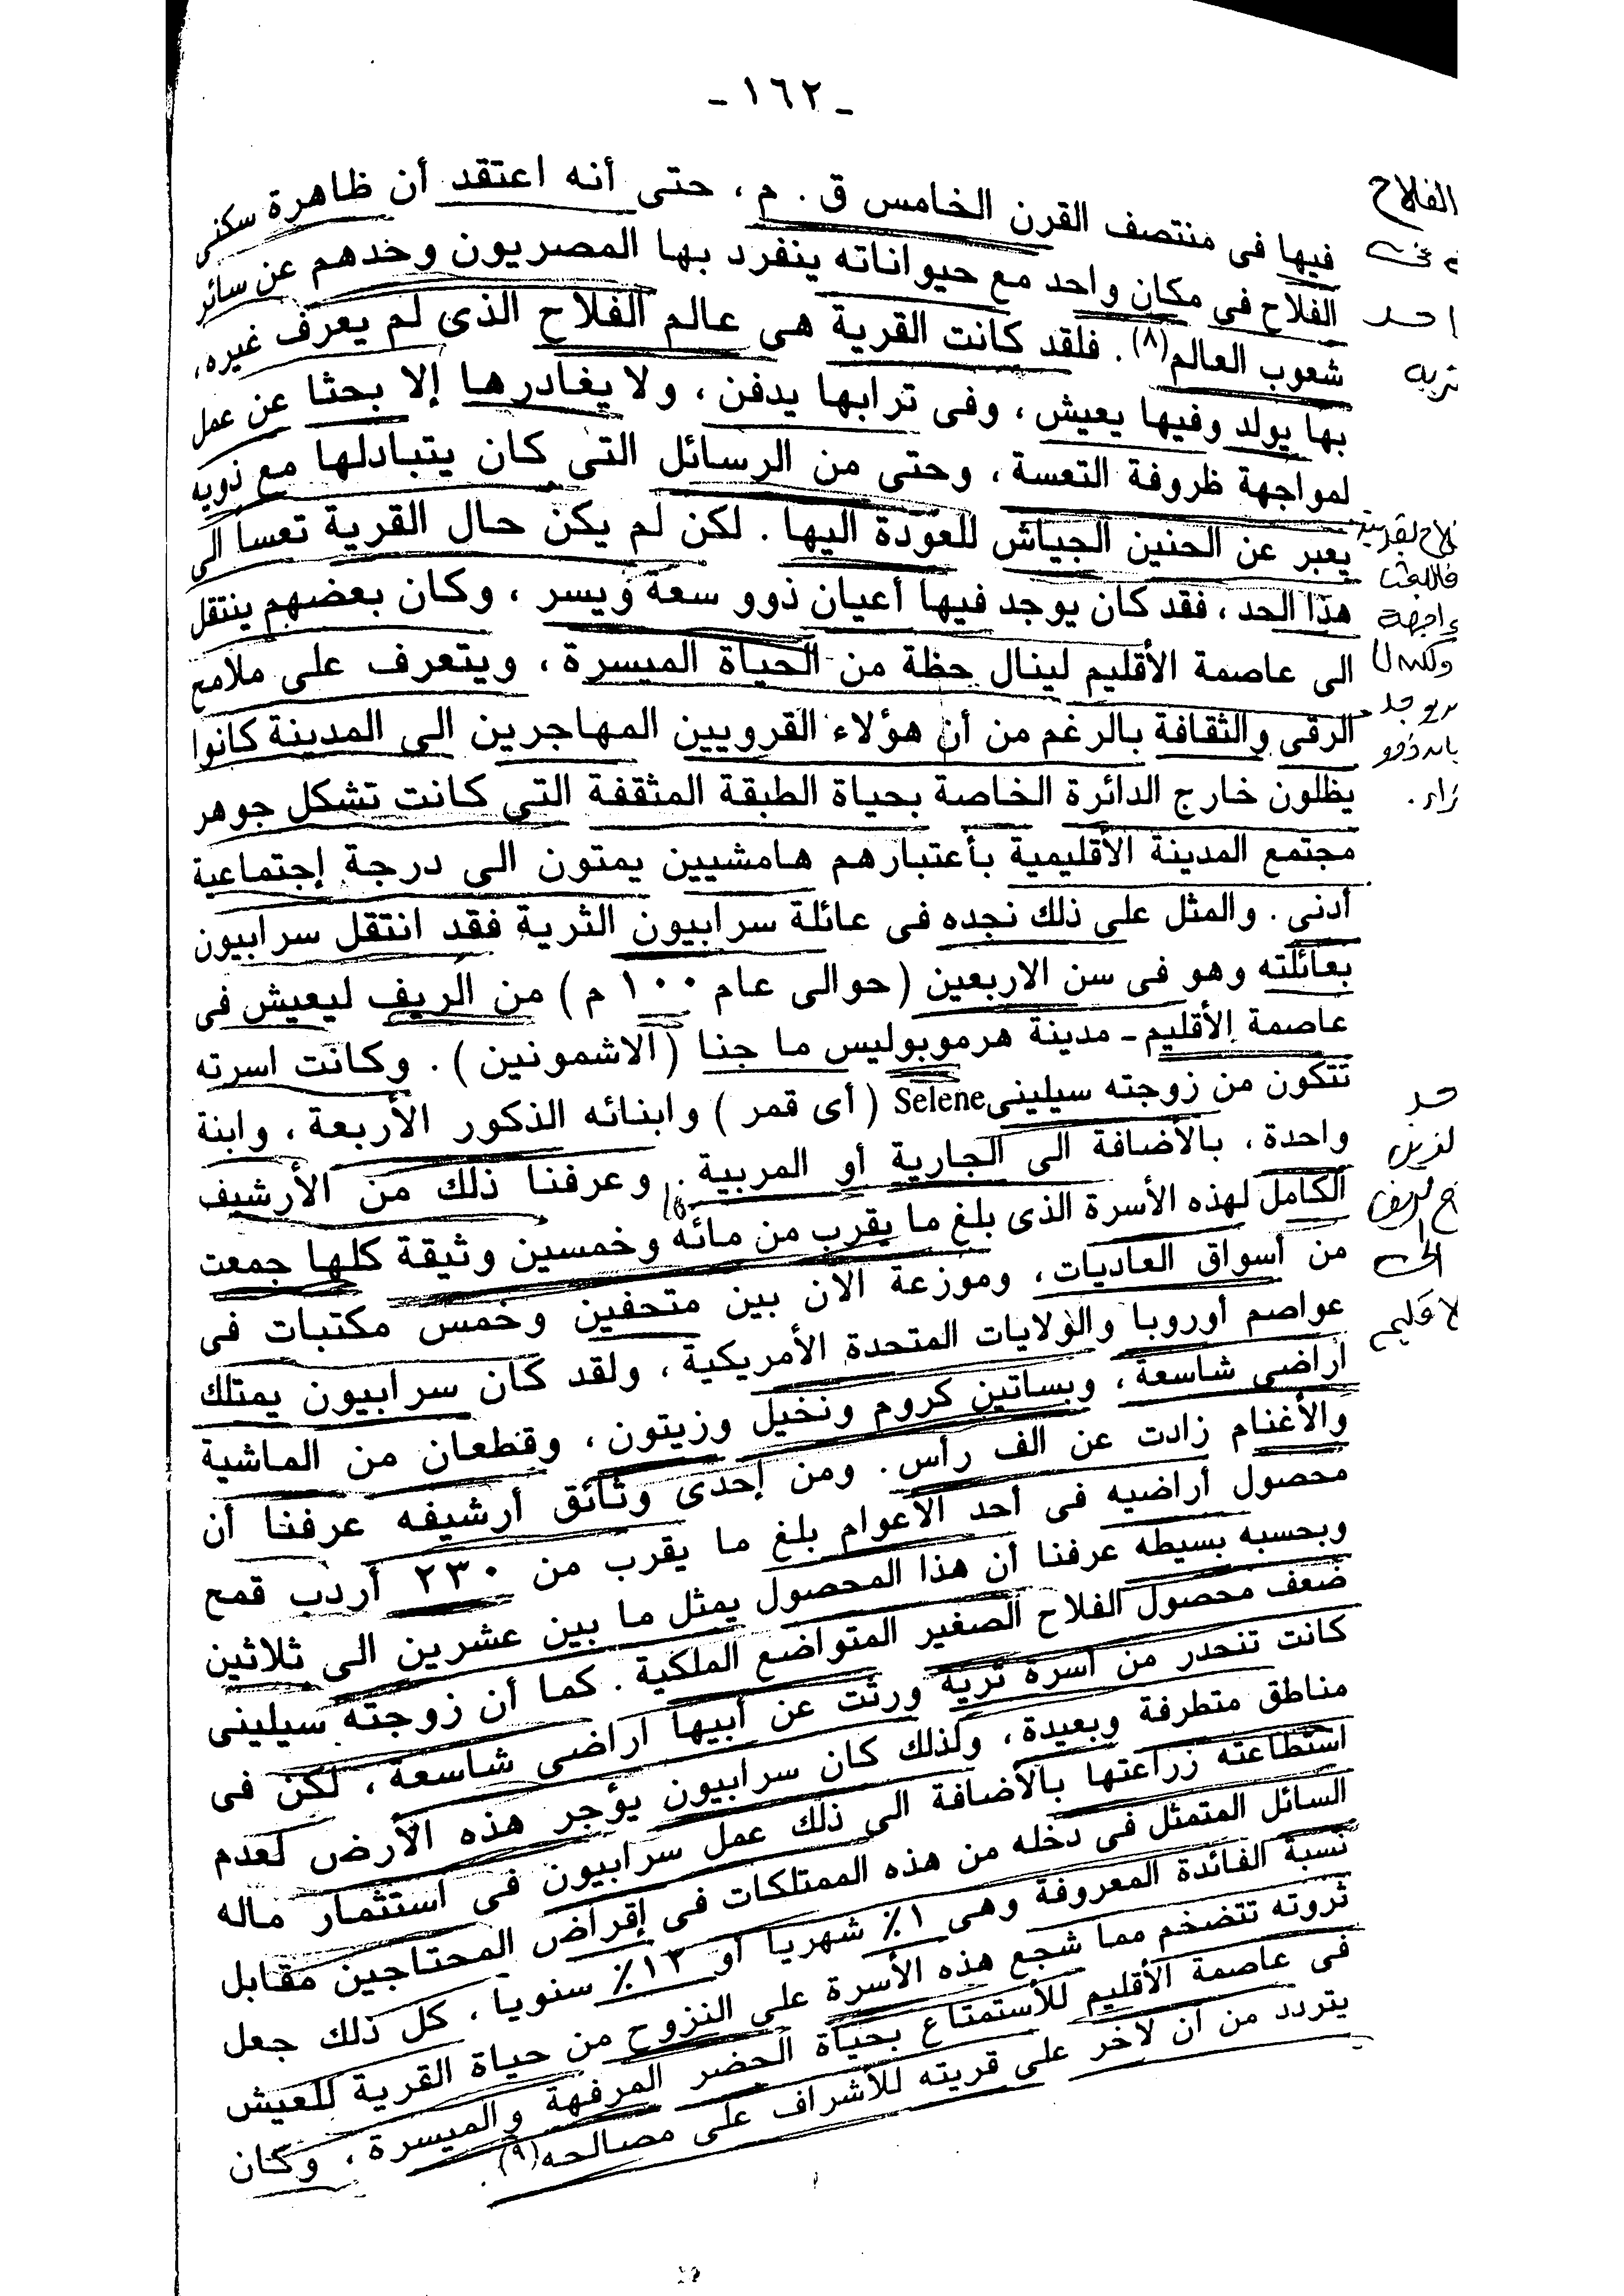 ـ ١٦٢ ـ
فيها فى منتصف القرن الخامس ق . م ، حتى أنه اعتقد أن ظاهرة سكنى
الفلاح فى مكان واحد مع حيواناته ينفرد بها المصريون وحدهم عن سائر
شعوب العالم(٨) . فلقد كانت القرية هى عالم الفلاح الذى لم يعرف غيره ،
بها يولد وفيها يعيش ، وفى ترابها يدفن ، ولا يغادرها إلا بحثا عن عمل
لمواجهة ظروفة التعسة ، وحتى من الرسائل التى كان يتبادلها مع ذويه
يعبر عن الحنين الجياش للعودة اليها . لكن لم يكن حال القرية تعسا الى
هذا الحد ، فقد كان يوجد فيها أعيان ذوو سعة ويسر ، وكان بعضهم ينتقل
الى عاصمة الأقليم لينال حظة من الحياة الميسرة ، ويتعرف على ملامح
الرقى والثقافة بالرغم من أن هؤلاء القرويين المهاجرين الى المدينة كانوا
يظلون خارج الدائرة الخاصة بحياة الطبقة المثقفة التى كانت تشكل جوهر
مجتمع المدينة الأقليمية بأعتبارهم هامشيين يمتون الى درجة إجتماعية
أدنى . والمثل على ذلك نجده فى عائلة سرابيون الثرية فقد انتقل سرابيون
بعائلته وهو فى سن الاربعين ( حوالى عام ١٠٠ م ) من الريف ليعيش فى
عاصمة الأقليم ـ مدينة هرموبوليس ما جنا ( الاشمونين ) . وكانت اسرته
تتكون من زوجته سيلينى Selene ( أى قمر ) وابنائه الذكور الأربعة ، وابنة
واحدة ، بالأضافة الى الجارية أو المربية . وعرفنا ذلك من الأرشيف
الكامل لهذه الأسرة الذى بلغ ما يقرب من مائه وخمسين وثيقة كلها جمعت
من أسواق العاديات ، وموزعة الان بين متحفين وخمس مكتبات فى
عواصم أوروبا والولايات المتحدة الأمريكية ، ولقد كان سرابيون يمتلك
أراضى شاسعة ، وبساتين كروم ونخيل وزيتون ، وقطعان من الماشية
والأغنام زادت عن الف رأس . ومن إحدى وثائق أرشيفه عرفنا أن
محصول أراضيه فى أحد الأعوام بلغ ما يقرب من ٢٣٠ أردب قمح
وبحسبه بسيطه عرفنا أن هذا المحصول يمثل ما بين عشرين الى ثلاثين
ضعف محصول الفلاح الصغير المتواضع الملكية . كما أن زوجته سيلينى
كانت تنحدر من أسرة ثرية ورثت عن أبيها اراضى شاسعة ، لكن فى
مناطق متطرفة وبعيدة ، ولذلك كان سرابيون يؤجر هذه الأرض لعدم
استطاعته زراعتها بالأضافة الى ذلك عمل سرابيون فى استثمار ماله
السائل المتمثل فى دخله من هذه الممتلكات فى إقراض المحتاجين مقابل
نسبة الفائدة المعروفة وهى ١٪ شهريا أو ١٢٪ سنويا ، كل ذلك جعل
ثروته تتضخم مما شجع هذه الأسرة على النزوح من حياة القرية للعيش
فى عاصمة الأقليم للأستمتاع بحياة الحضر المرفهة والميسرة ، وكان
يتردد من ان لاخر على قريته للأشراف على مصالحه(٩) .
الفلاح